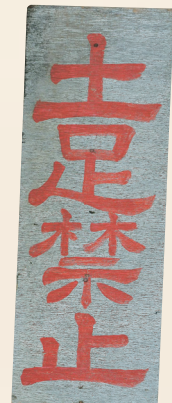 土足禁止